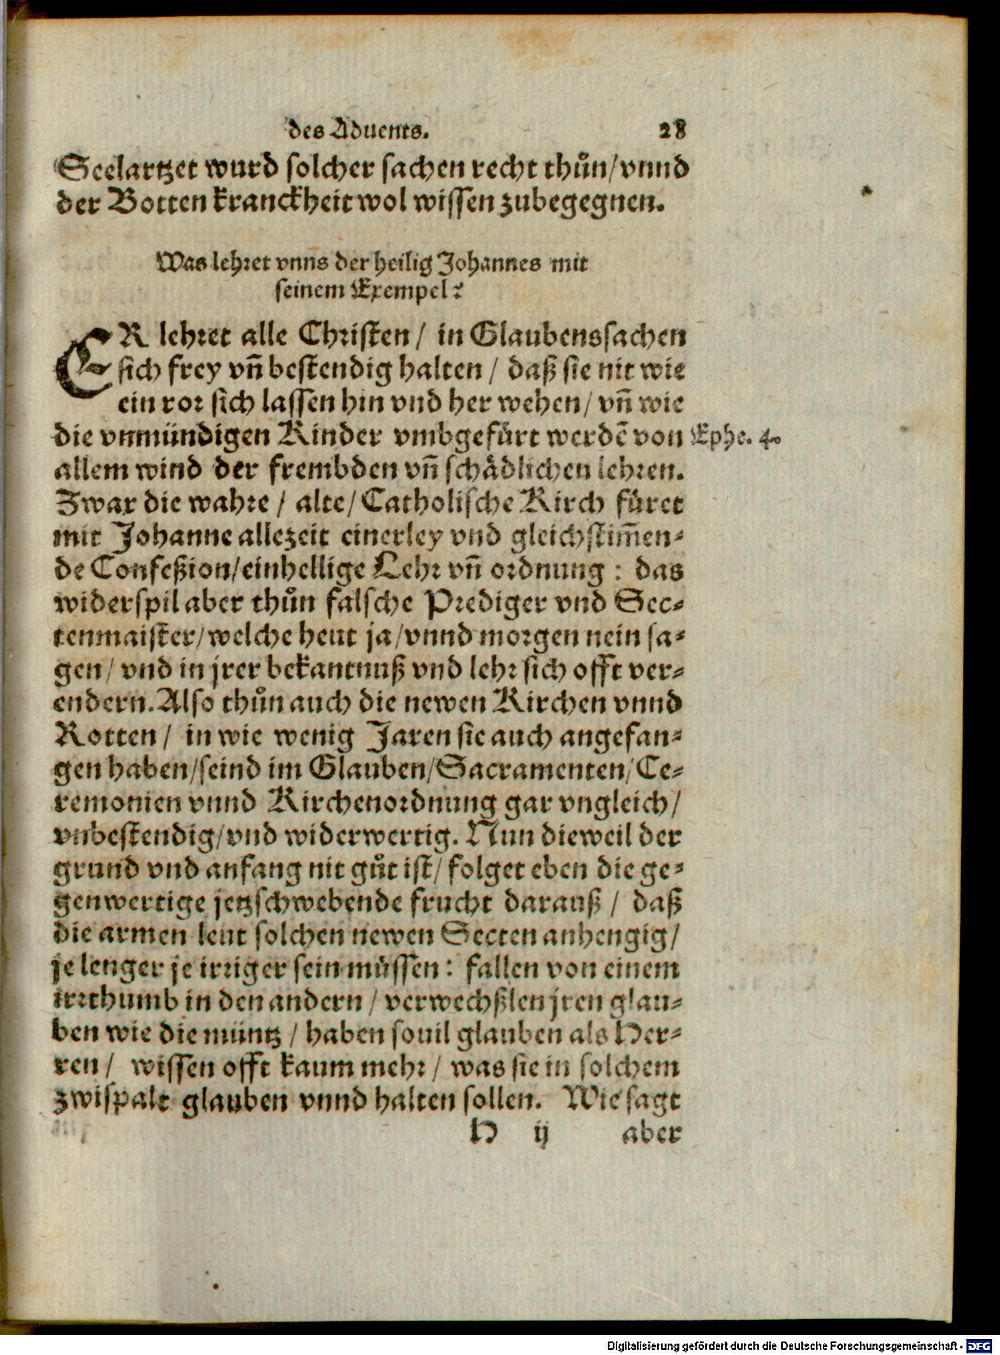 des Aduents. 28
Seelartzet wurd solcher sachen recht thůn/vnnd
der Botten kranckheit wol wissen zubegegnen.
Was lehret vnns der heilig Johannes mit
seinem Exempel?
ER lehret alle Christen/ in Glaubenssachen
sich frey vn̄ bestendig halten/ daß sie nit wie
ein ror sich lassen hin vnd her wehen/ vn̄ wie
die vnmündigen Kinder vmbgefürt werdē von
Ephe. 4.
allem wind der frembden vn̄ schädlichen lehren.
Zwar die wahre/ alte/ Catholische Kirch füret
mit Johanne allezeit einerley vnd gleichstim̄en-
de Confeßion/einhellige Lehr vn̄ ordnung: das
widerspil aber thůn falsche Prediger vnd Sec-
tenmaister/welche heut ja/vnnd morgen nein sa-
gen/ vnd in jrer bekantnuß vnd lehr sich offt ver-
endern. Also thůn auch die newen Kirchen vnnd
Rotten/ in wie wenig Jaren sie auch angefan-
gen haben/seind im Glauben/Sacramenten/Ce-
remonien vnnd Kirchenordnung gar vngleich/
vnbestendig/vnd widerwertig. Nun dieweil der
grund vnd anfang nit gůt ist/ folget eben die ge-
genwertige jetzschwebende frucht darauß/ daß
die armen leut solchen newen Secten anhengig/
je lenger je irriger sein müssen: fallen von einem
irrthumb in den andern/ verwechßlen jren glau-
ben wie die müntz/ haben souil glauben als Her-
ren/ wissen offt kaum mehr/ was sie in solchem
zwispalt glauben vnnd halten sollen. Wie sagt
H ij aber
Digitalisierung gefördert durch die Deutsche Forschungsgemeinschaft - DFG